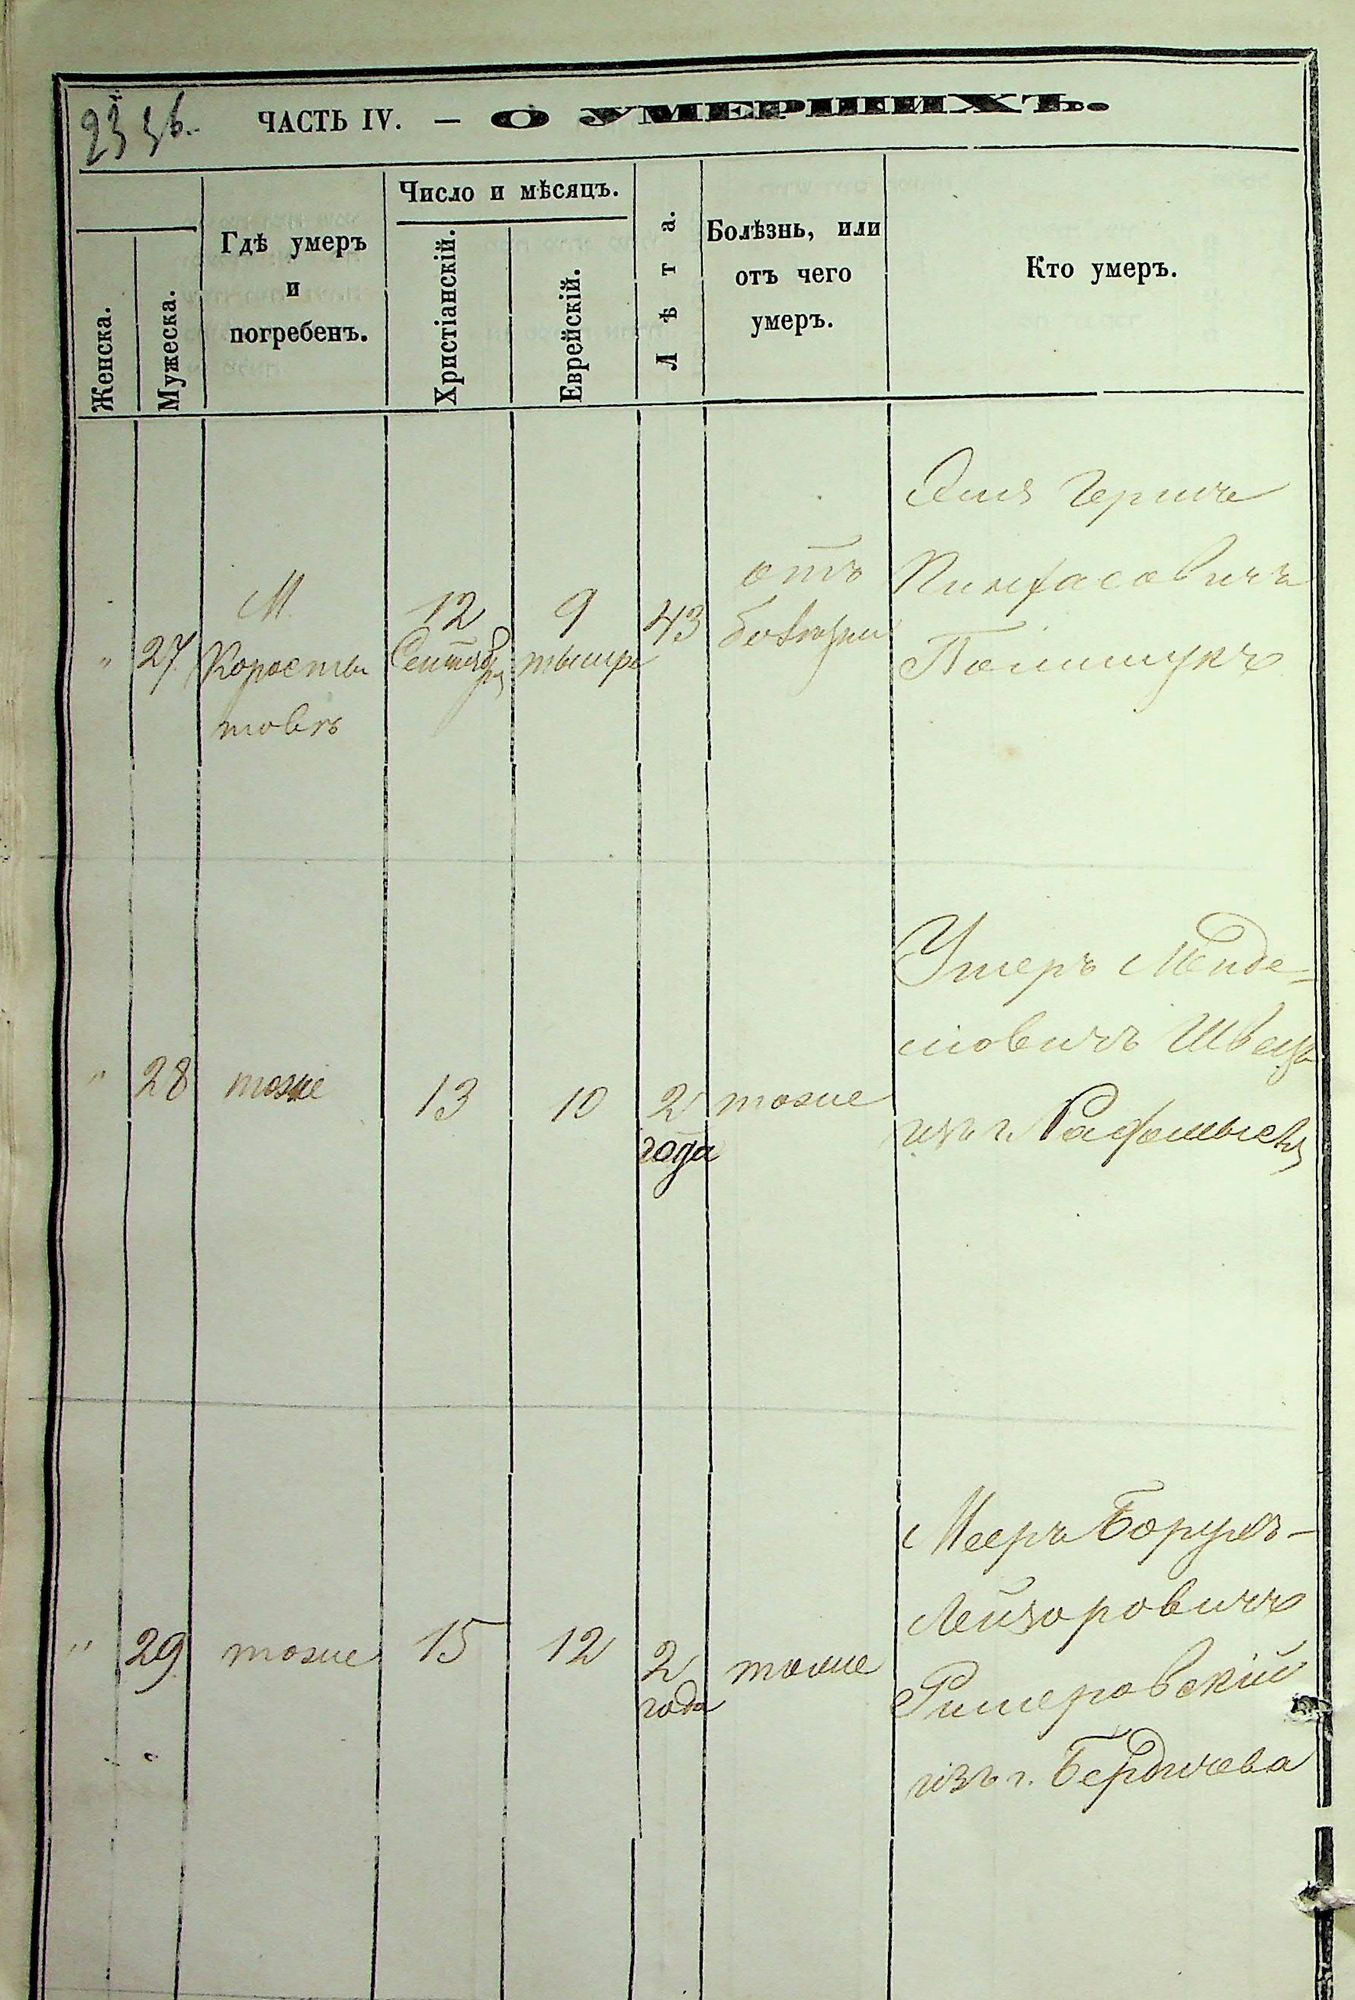 ЧАСТЬ IV. — О УМЕРШИХЪ.
Женска.
Мужеска.
Гдѣ умеръ
и
погребенъ.
Число и мѣсяцъ.
Христіанскій.
Еврейскій.
Лѣта.
Болѣзнь, или
отъ чего
умеръ.
Кто умеръ.
" 27
М.
Коросты
шовъ
12
Сентября
9
тышре
43
отъ
болѣзни
Гершче
Пинхасовичъ
Полищукъ
" 28
тоже
13
10
2
года
тоже
Ушеръ Менде-
лювичъ Швецъ
изъ г. Радомысля
" 29
тоже
15
12
2
года
тоже
Мееръ Борухъ-
Лейзоровичъ
изъ г. Бердичева